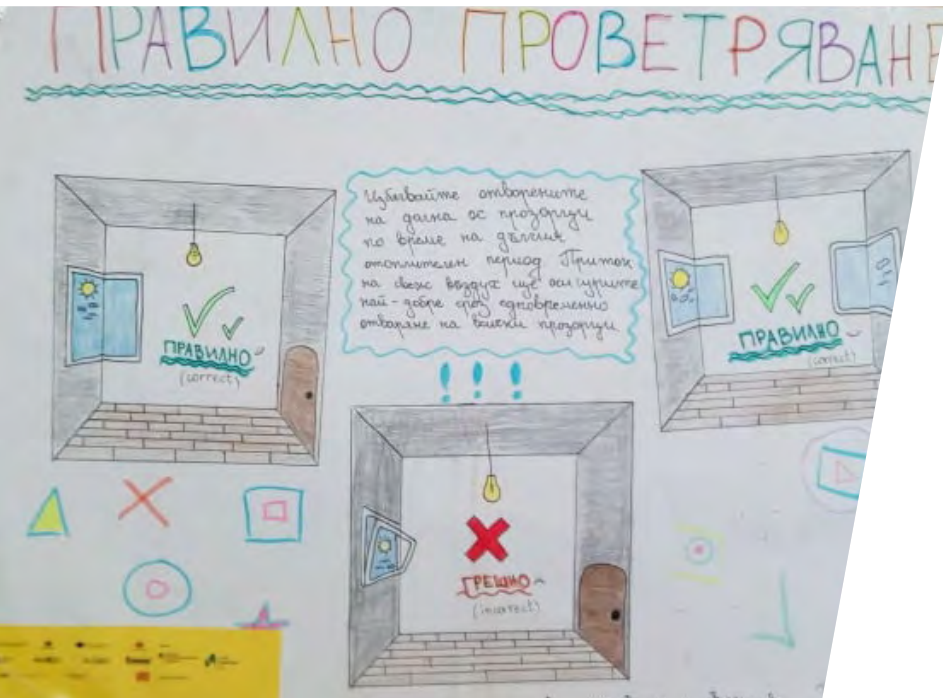 ПРАВИЛНО ПРОВЕТРЯВАНЕ
Избягвайте отворените
на долна ос прозорци
по време на дългия
отоплителен период Приток
на свеж въздух ще осигурите
най-добре чрез едновременно
отваряне на всички прозорци
!!!
ПРАВИЛНО
(correct)
ПРАВИЛНО
(correct)
ГРЕШНО
(incorrect)